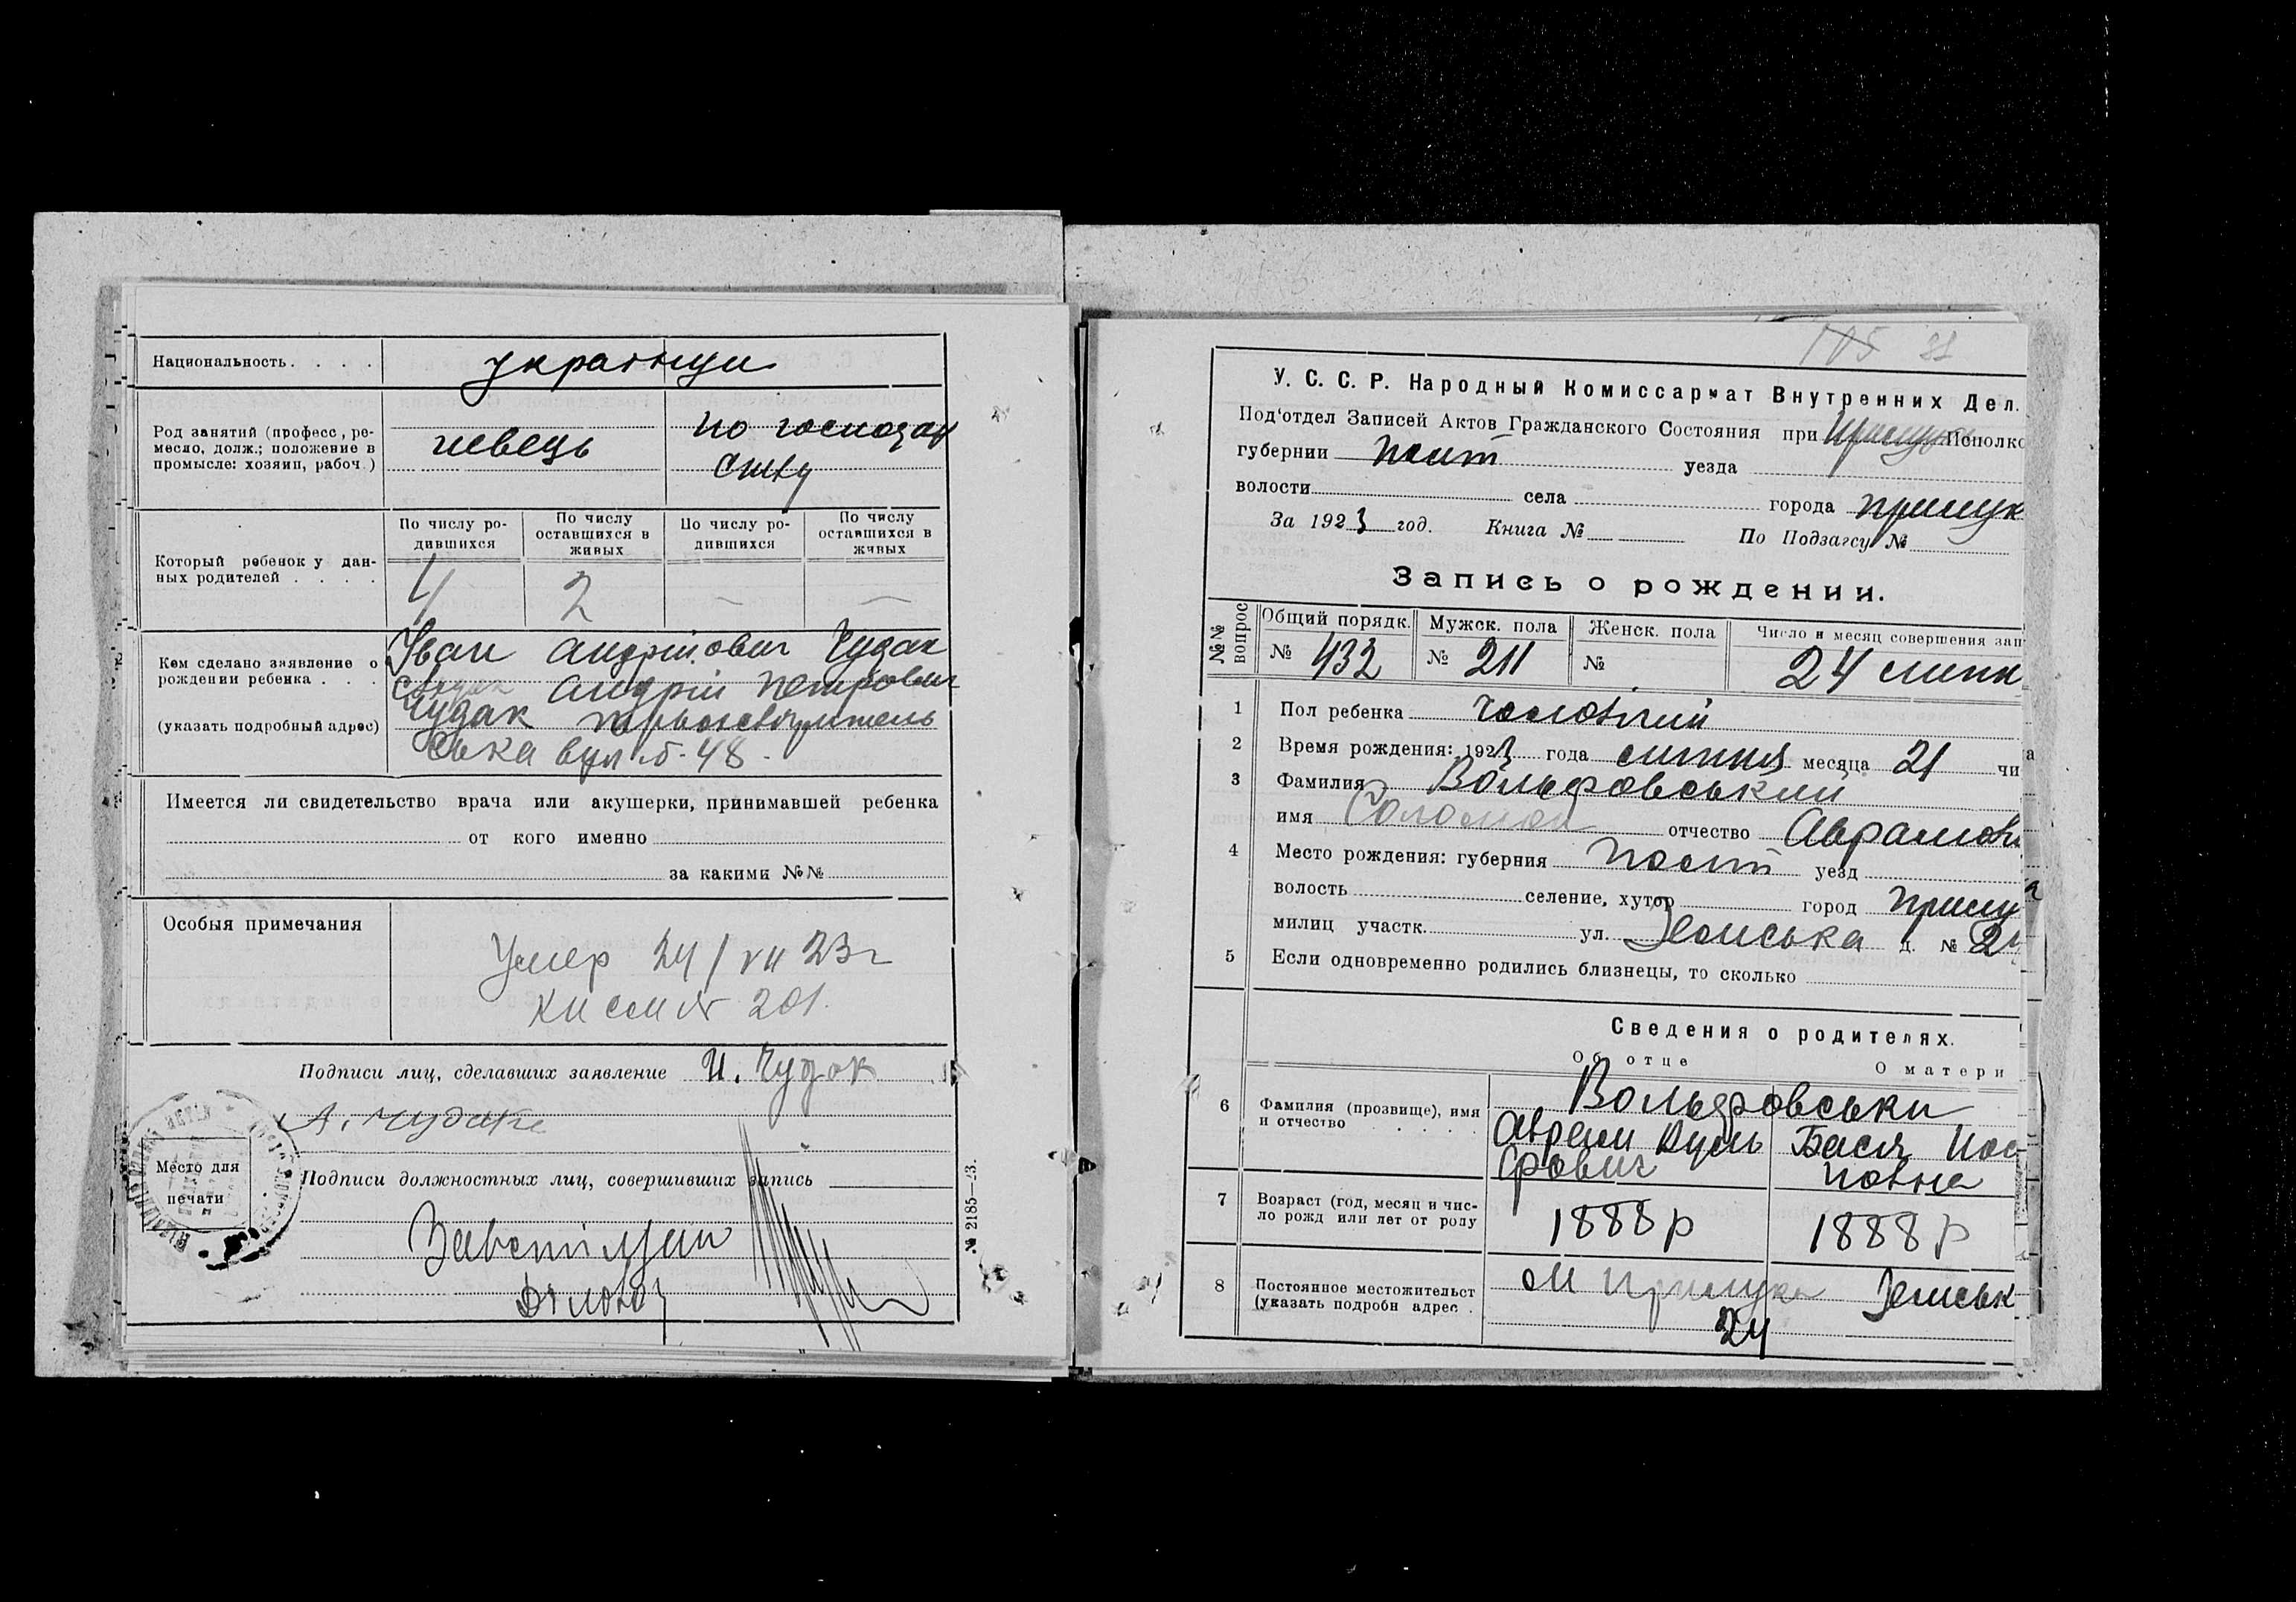 Национальность. . . . українци
Род занятий (професс, ре-
месло, долж.; положение в
промысле: хозяин, рабоч.)
швець
по господар
ству
Который ребенок у дан-
ных родителей . . . .
По числу ро-
дившихся
По числу
оставшихся в
живых
По числу ро-
дившихся
По числу
оставшихся в
живых
4 2 — —
Кем сделано заявление о
рождении ребенка . . .
(указать подробный адрес)
Іван Андрійович Чудак
Андрій Петрович
Чудак
ська вул. б-48-
Имеется ли свидетельство врача или акушерки, принимавшей ребенка
от кого именно
за какими №№
Особыя примечания
Умер 24/VII 23г
№ 201.
Подписи лиц, сделавших заявление И. Чудак
А. Чудак
Место для
печати
Подписи должностных лиц, совершивших запись
Діловод
№ 2185—23.
105
У. С. С. Р. Народный Комиссариат Внутренних Дел.
Под'отдел Записей Актов Гражданского Состояния при Исполко
губернии Полт уезда
волости села города Прилук
За 1923 год. Книга № По Подзагсу №
Запись о рождении.
№№
вопрос
Общий порядк.
№ 432
Мужск. пола
№ 211
Женск. пола
№
Число и месяц совершения зап
24 липн
1 Пол ребенка чоловічий
2 Время рождения: 1923 года липня месяца 21 чи
3 Фамилия Вольфовський
имя Соломон отчество Аврамов
4 Место рождения: губерния Полт уезд
волость селение, хутор город Прилу
милиц участк. ул. Земська д. № 24
5 Если одновременно родились близнецы, то сколько
Сведения о родителях.
Об отце О матери
6 Фамилия (прозвище), имя
и отчество . . . . .
Вольфовськи
Аврам Вуль
фович
Бася Иос
повна
7 Возраст (год, месяц и чис-
ло рожд или лет от роду
1888 р 1888 р
8 Постоянное местожительст
(указать подробн адрес .
М Прилука Земськ
24